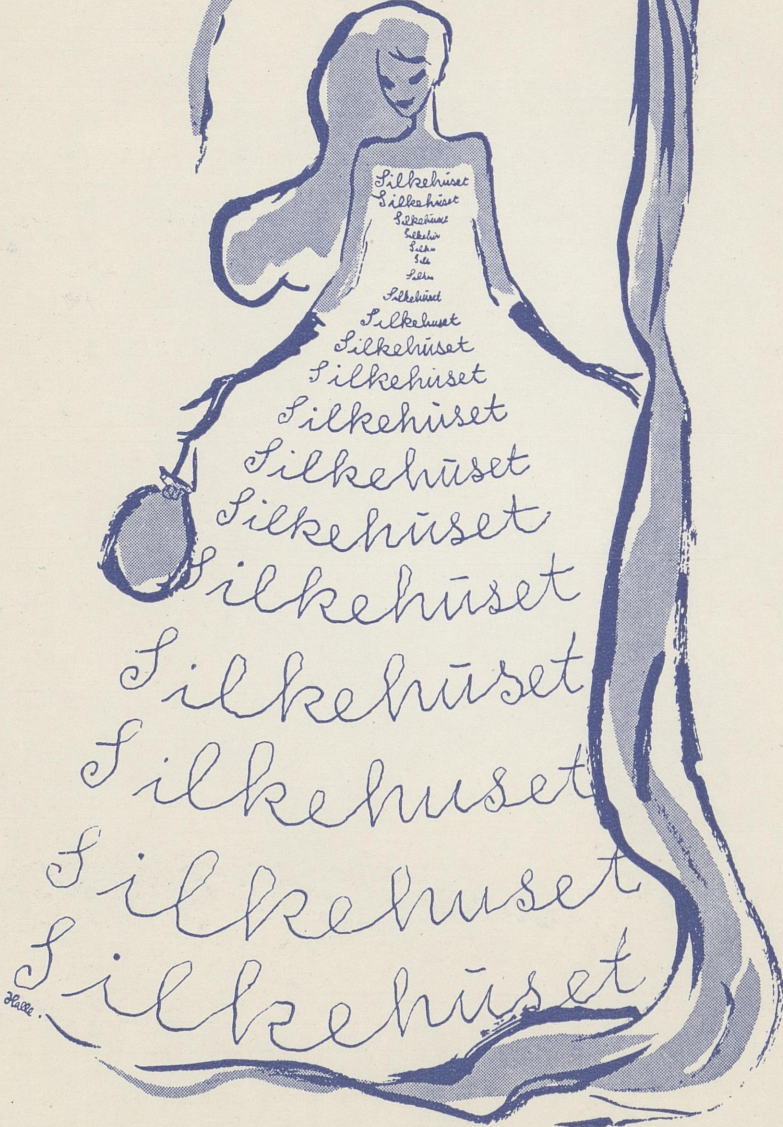 Silkehuset
Silkehuset
Silkehuset
Silke
Silke
Silkehuset
Silkehuset
Silkehuset
Silkehuset
Silkehuset
Silkehuset
Silkehuset
Silkehuset
Silkehuset
Silkehuset
Silkehuset
Silkehuset